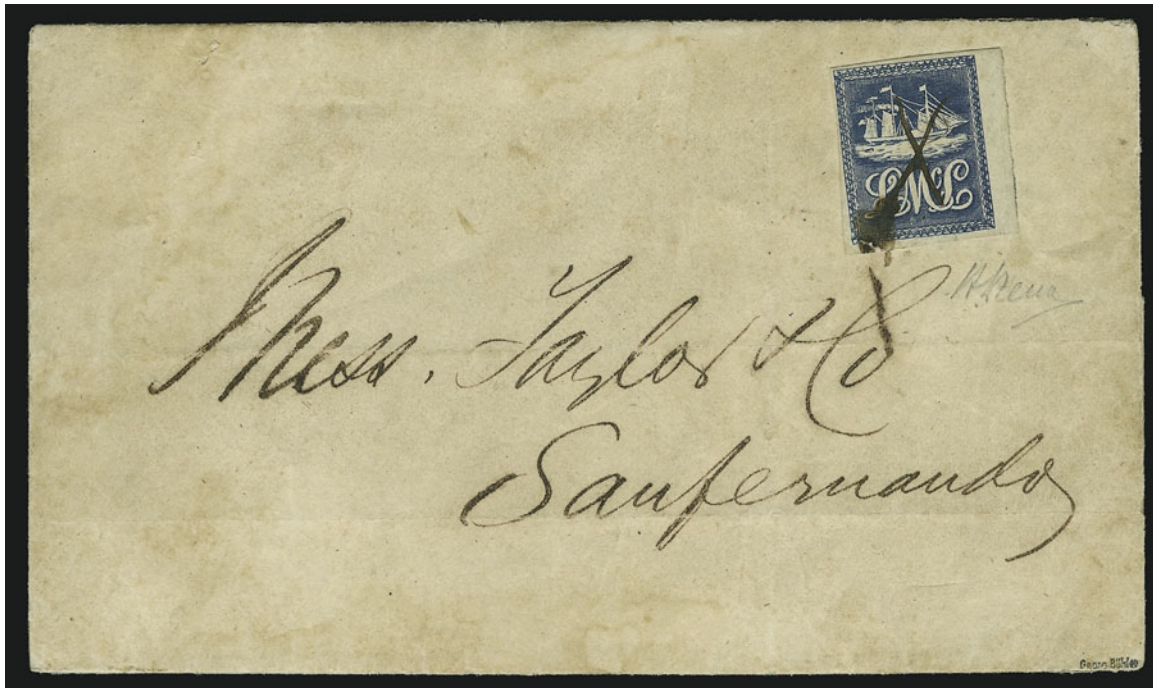 LMcL
Mess. Taylor & Co
Sanfernando
Georg Bühler